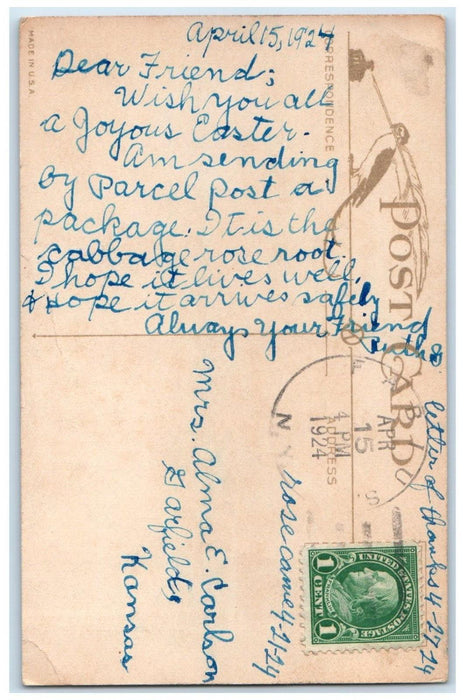 April 15, 1924
Dear Friend;
Wish you all
a Joyous Easter.
Am sending
by Parcel Post a
package. It is the
cabbage rose root.
I hope it lives well,
& Hope it arrives safely
Always Your Friend
MADE IN U.S.A.
CORRESPONDENCE
POST CARD
ADDRESS
APR
15
4 PM
1924
N
S
Mrs. Alma E. Carlson
Garfield,
Kansas
rose came 4-21-24
letter of thanks 4-27-24
UNITED STATES POSTAGE
FRANKLIN
1 CENT 1